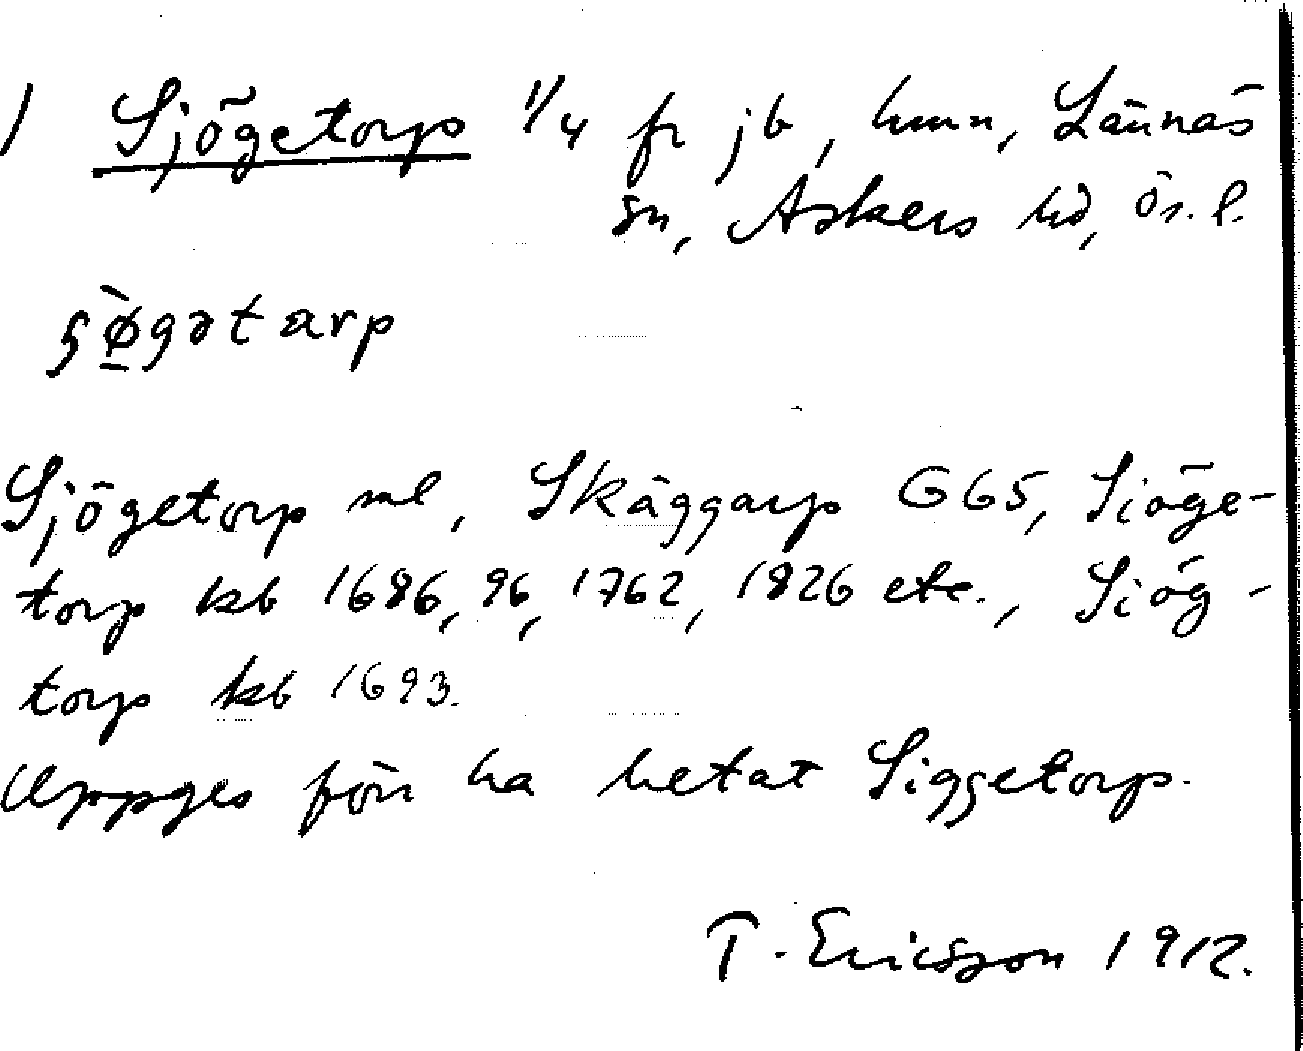 ) Sjögetorp 1/4 fr jb, hmn, Lännäs
sn, Askers hd, Ör. l.
ʂø̀gətarp
Sjögetorp ml, Skäggarp G65, Siöge-
torp kb 1686, 96, 1762, 1826 etc., Siög-
torp kb 1693.
Uppges förr ha hetat Siggetorp.
T. Ericsson 1912.